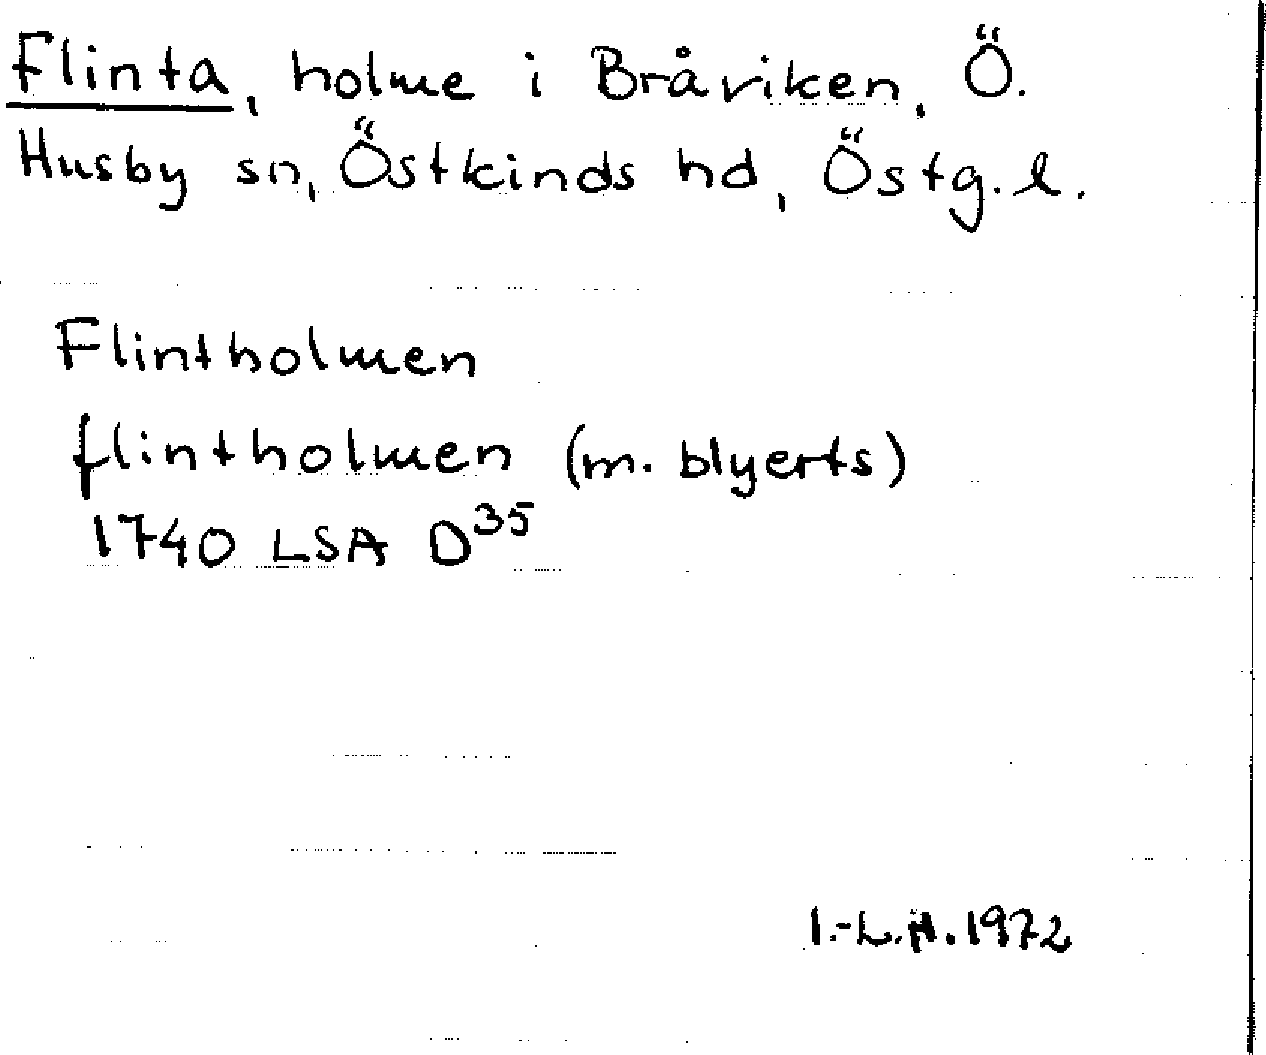 Flinta, holme i Bråviken, Ö.
Husby sn, Östkinds hd, Östg. l.
Flintholmen
flintholmen (m. blyerts)
1740 LSA D³⁵
I.-L.H. 1972